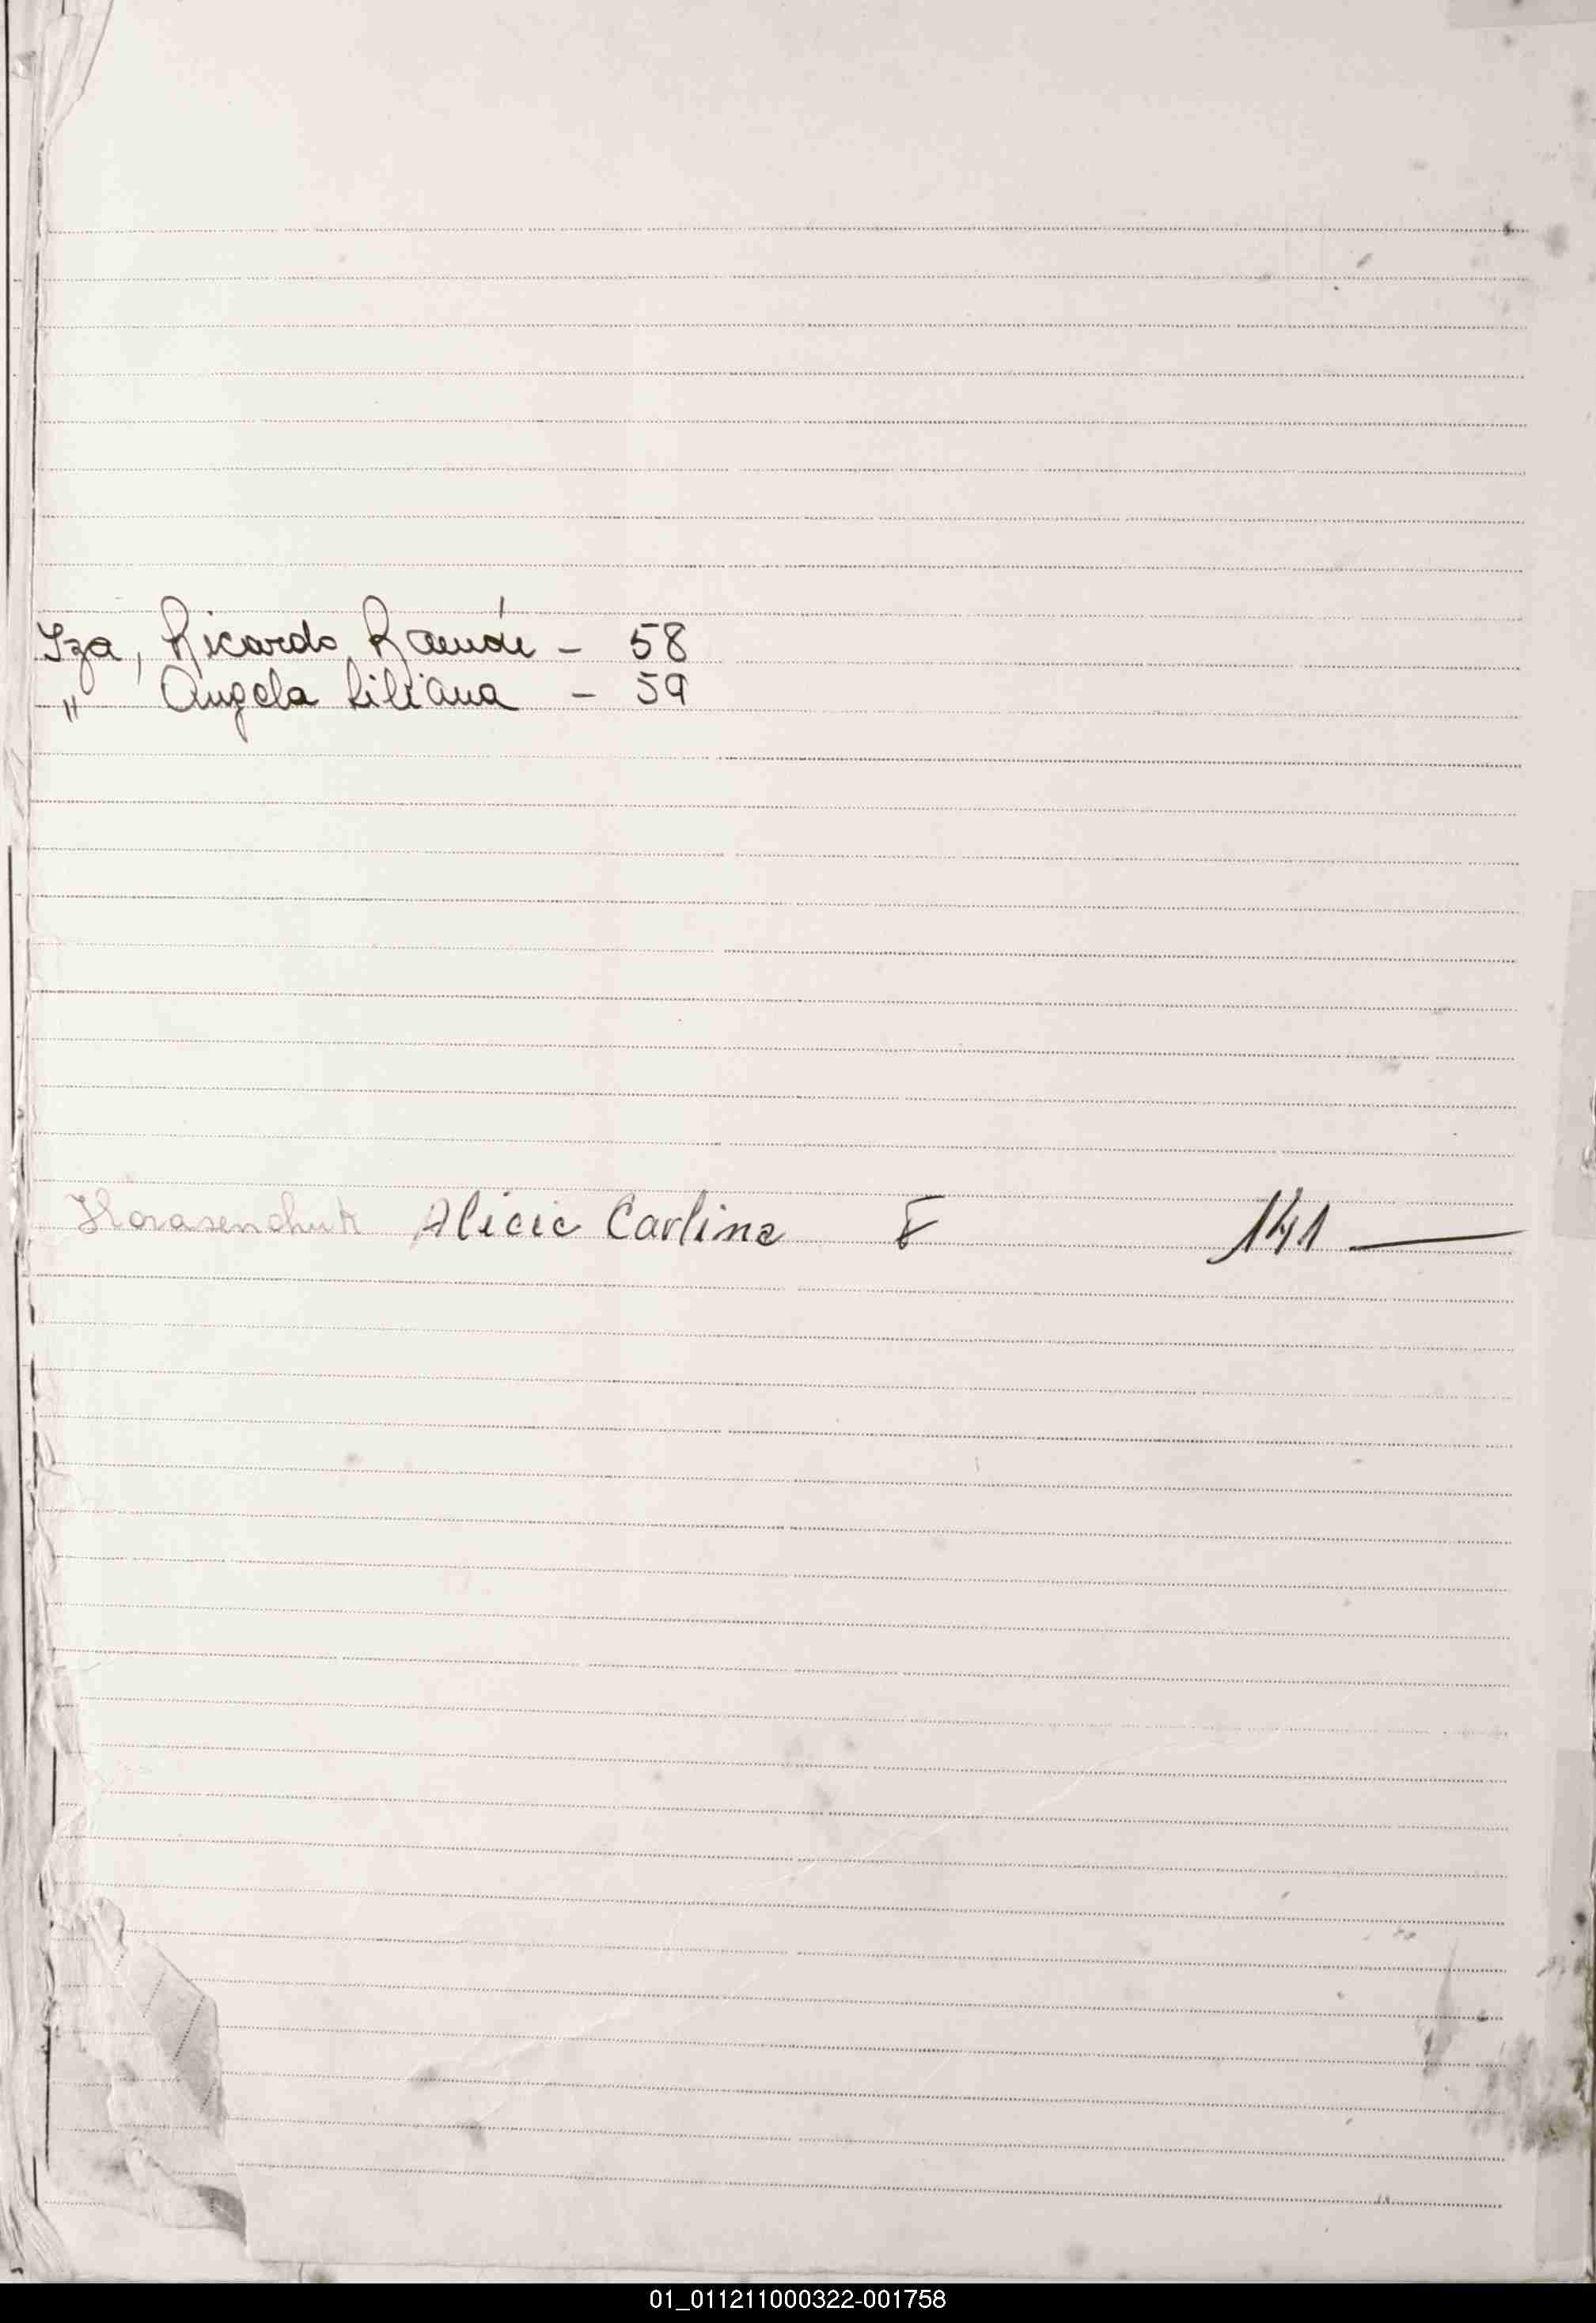 Iza, Ricardo Ramón - 58
" Angela Liliana - 59
Alicia Carlina F 141
01_011211000322-001758